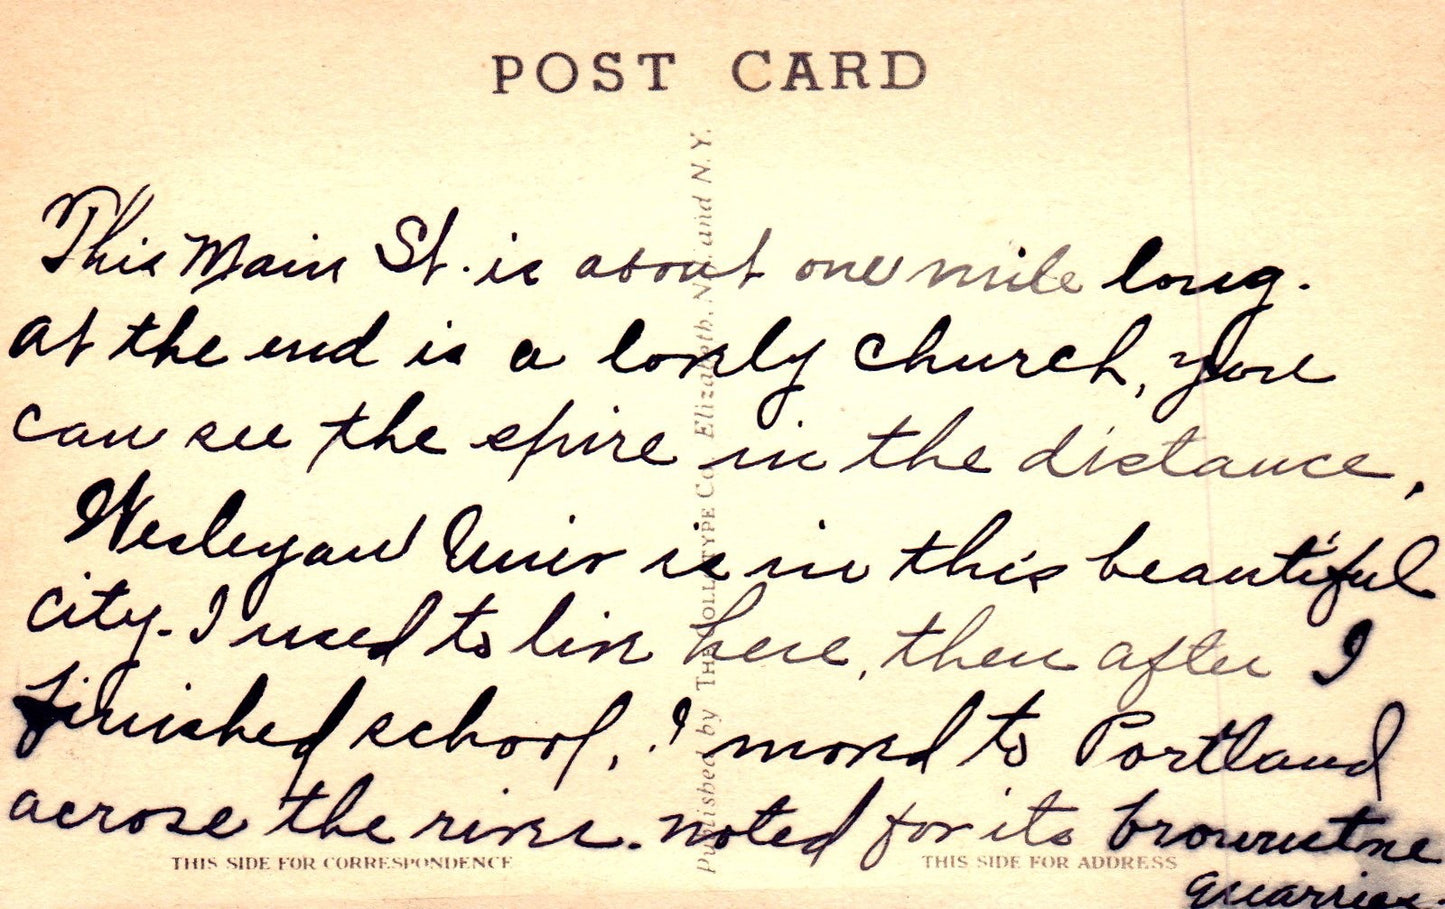 POST CARD
This Main St. is about one mile long.
at the end is a lovely church, you
can see the spire in the distance,
Wesleyan Univ is in this beautiful
city. I used to live here, then after I
finished school, I moved to Portland
across the river. noted for its brownstone
quarries.
THIS SIDE FOR CORRESPONDENCE
THIS SIDE FOR ADDRESS
Published by THE COLLOTYPE Co., Elizabeth, N.J. and N.Y.